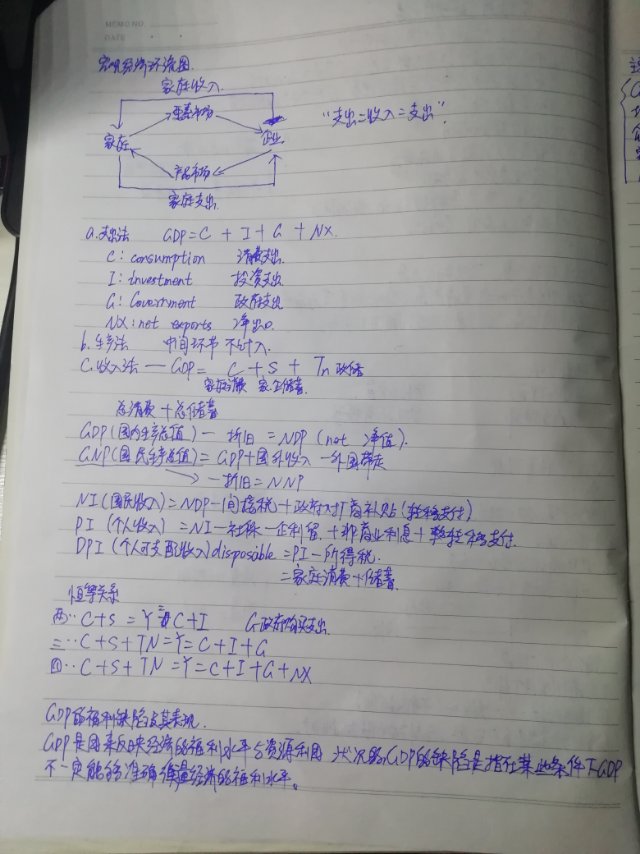 宏观经济环流图
家庭收入
要素市场
家庭 企业 "支出=收入=支出"
产品市场
家庭支出
a.支出法 GDP=C+I+G+NX
C:consumption 消费支出
I:investment 投资支出
G:Government 政府支出
NX:net exports 净出口
b.生产法 中间环节不计入
C.收入法—GDP=C+S+Tn政储
家庭消费 家庭储蓄
总消费+总储蓄
GDP(国内生产总值)-折旧=NDP(net 净值).
GNP(国民生产总值)=GDP+国外收入-外国带走
→-折旧=NNP
NI(国民收入)=NDP-间接税+政府对厂商补贴(转移支付)
PI(个人收入)=NI-社保-企利留+非商业利息+转移支付
DPI(个人可支配收入)disposible=PI-所得税.
=家庭消费+储蓄
恒等关系
两:C+S=Y=C+I G政府购买支出
三:C+S+TN=Y=C+I+G
四:C+S+TN=Y=C+I+G+NX
GDP的福利缺陷及其表现
GDP是用来反映经济的福利水平与资源利用状况的,GDP的缺陷是指在某些条件下GDP
不一定能够准确衡量经济的福利水平。